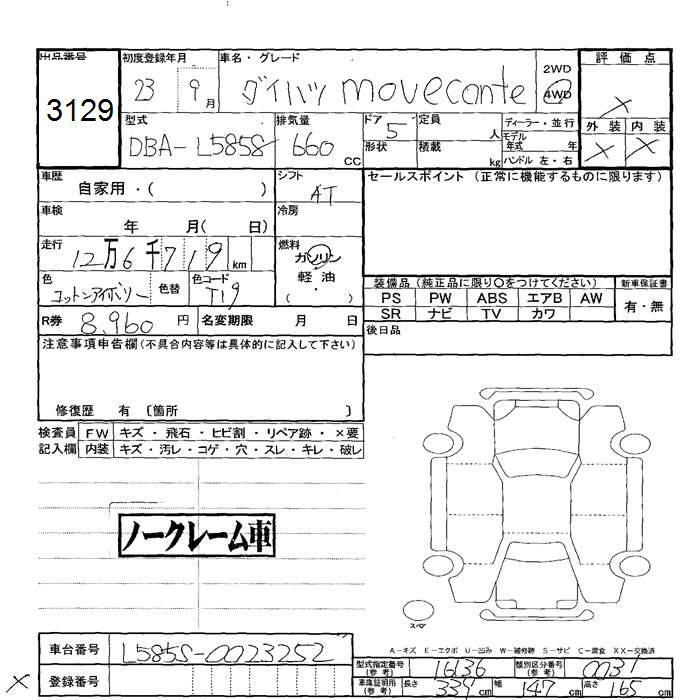 出品番号 初度登録年月 車名・グレード 評価点
3129 23 9月 ダイハツ moveconte 2WD 4WD ×
型式 排気量 ドア 定員 ディーラー・並行 外装 内装
DBA-L585S 660 CC 5 人 モデル年式 年 × ×
形状 積載 kg ハンドル 左・右
車歴 自家用・( ) シフト AT セールスポイント (正常に機能するものに限ります)
車検 年 月( 日) 冷房
走行 12万6千719km 燃料 ガソリン
色 コットンアイボリー 色替 色コード T19 軽油
( ・ )
装備品 (純正品に限り○をつけてください) 新車保証書
PS PW ABS エアB AW 有・無
SR ナビ TV カワ
R券 8,960円 名変期限 月 日 後日品
注意事項申告欄(不具合内容等は具体的に記入して下さい)
修復歴 有 〔箇所 〕
検査員 FW キズ・飛石・ヒビ割・リペア跡・×要
記入欄 内装 キズ・汚レ・コゲ・穴・スレ・キレ・破レ
ノークレーム車
スペア
A-キズ E-エクボ U-凹み W-補修跡 S-サビ C-腐食 XX-交換済
車台番号 L585S-0023252 型式指定番号(参考) 16136 類別区分番号(参考) 0031
× 登録番号 車庫証明用(参考) 長さ 339cm 幅 147cm 高さ 165cm